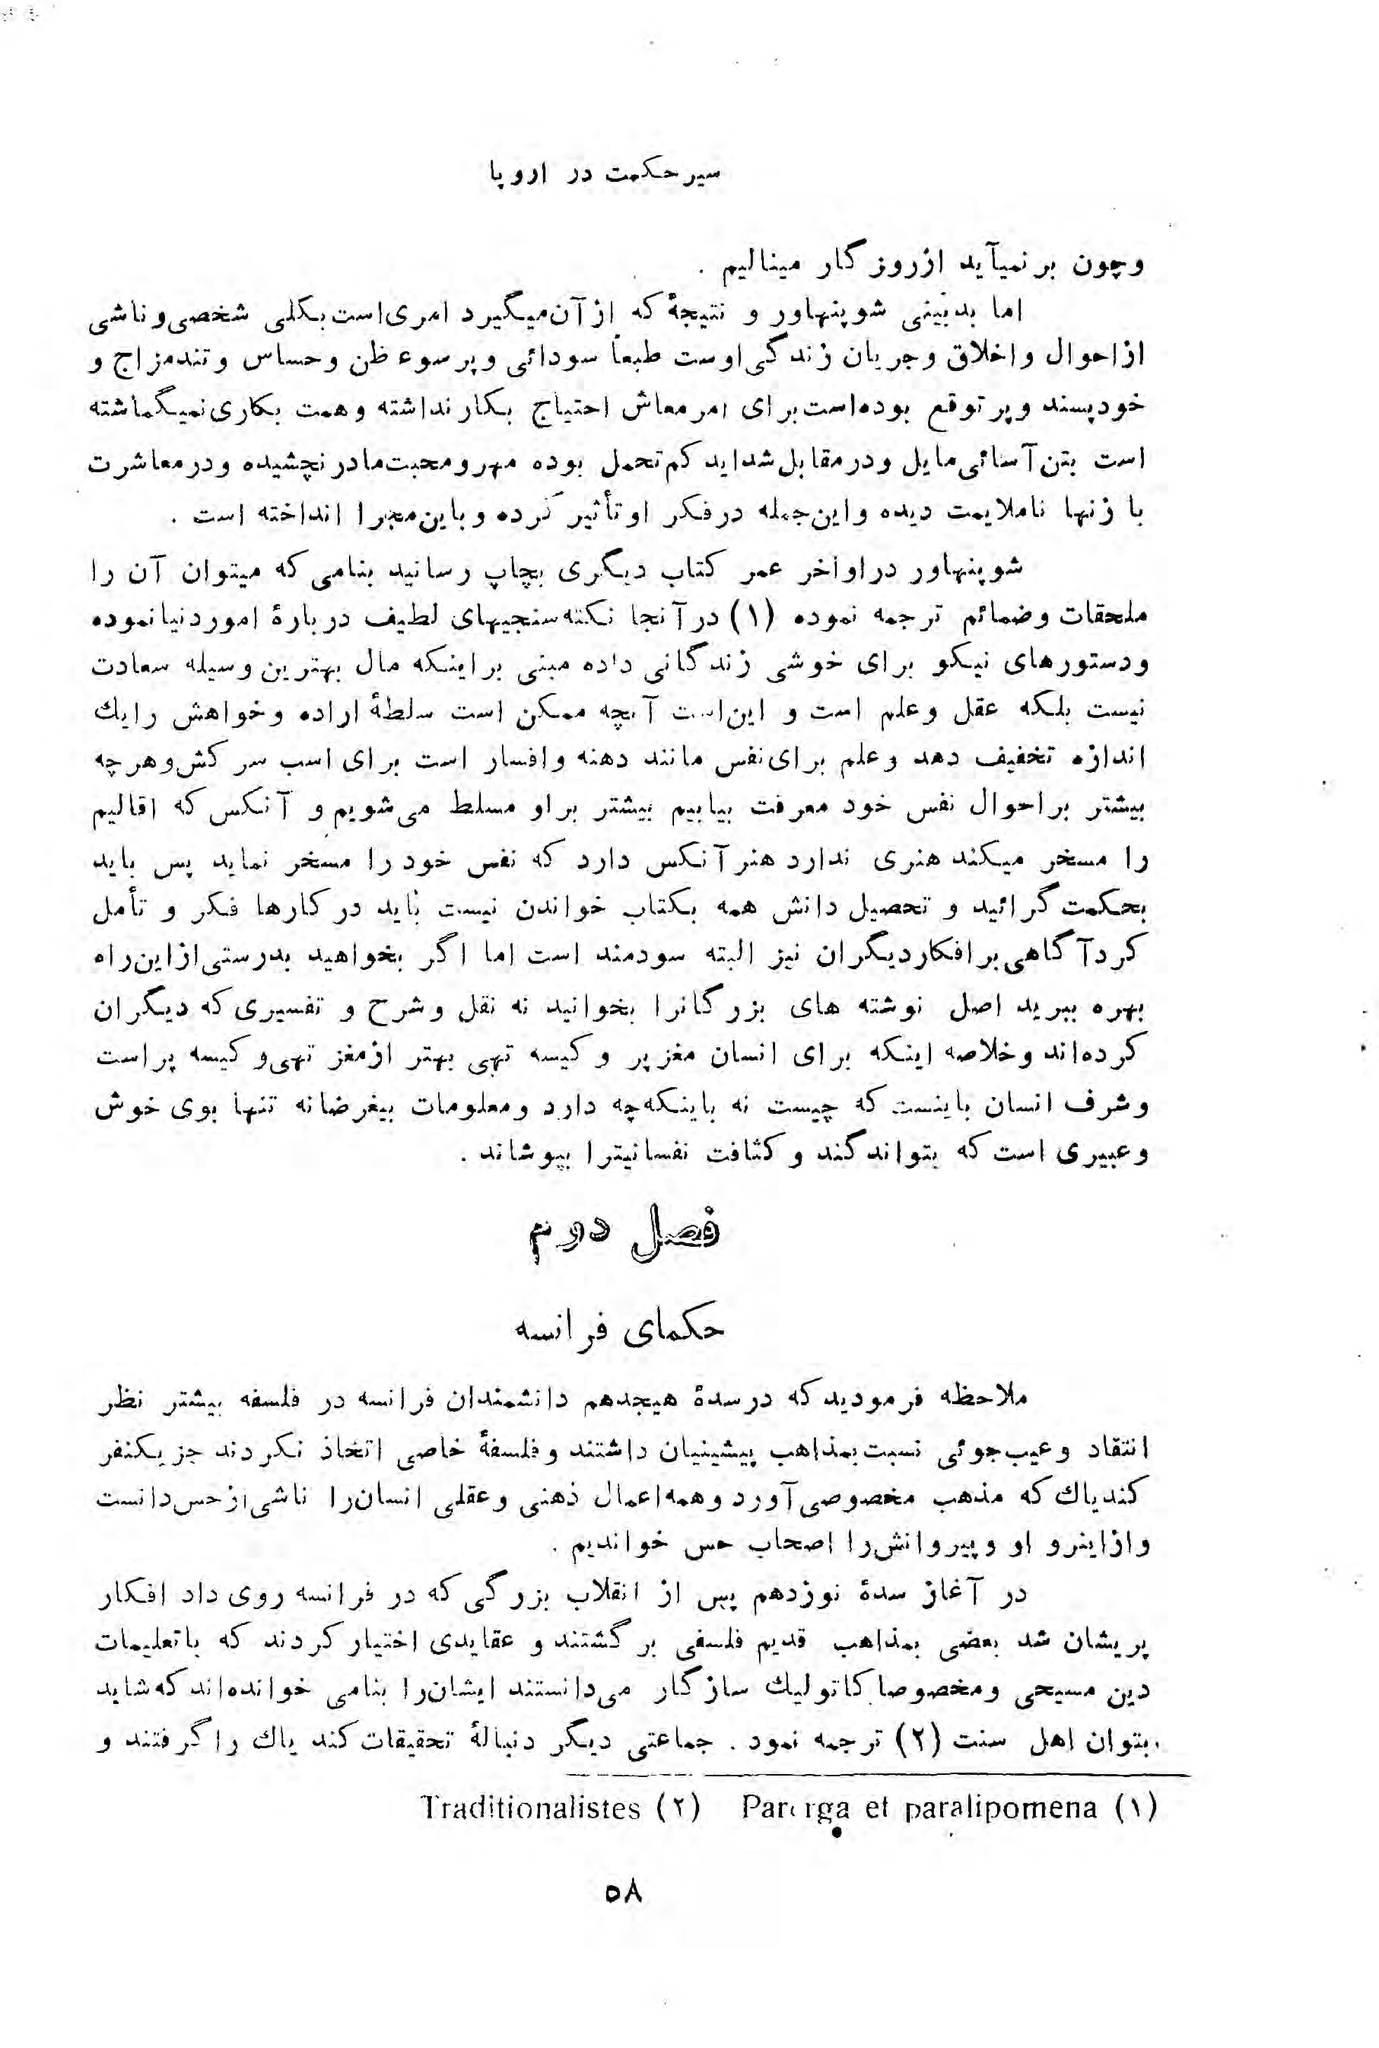 سیر حکمت در اروپا
وچون برنمیآید ازروزگار مینالیم .
اما بدبینی شوپنهاور و نتیجهٔ که ازآن‌میگیرد امری‌است‌بکلی شخصی‌وناشی
ازاحوال واخلاق وجریان زندگی‌اوست طبعاً سودائی وپرسوء ظن وحساس وتندمزاج و
خودپسند وپرتوقع بوده‌است‌برای امرمعاش احتیاج بکارنداشته وهمت بکاری‌نمیگماشته
است بتن‌آسائی‌مایل ودرمقابل‌شداید کم‌تحمل بوده مهرومحبت‌مادرنچشیده ودرمعاشرت
با زنها ناملایمت دیده واین‌جمله درفکر اوتأثیر کرده وباین‌مجرا انداخته است .
شوپنهاور دراواخر عمر کتاب دیگری بچاپ رسانید بنامی‌که میتوان آن را
ملحقات وضمائم ترجمه نموده (۱) درآنجا نکته‌سنجیهای لطیف دربارهٔ اموردنیانموده
ودستورهای نیکو برای خوشی زندگانی داده مبنی براینکه مال بهترین‌وسیله سعادت
نیست بلکه عقل وعلم است و این‌است آنچه ممکن است سلطهٔ اراده وخواهش رایك
اندازه تخفیف دهد وعلم برای‌نفس مانند دهنه وافسار است برای اسب سرکش‌وهرچه
بیشتر براحوال نفس خود معرفت بیابیم بیشتر براو مسلط می‌شویم و آنکس که اقالیم
را مسخر میکند هنری ندارد هنرآنکس دارد که نفس خودرا مسخر نماید پس باید
بحکمت‌گرائید و تحصیل دانش همه بکتاب خواندن نیست باید درکارها فکر و تأمل
کردآگاهی‌برافکاردیگران نیز البته سودمند است اما اگر بخواهید بدرستی‌ازاین‌راه
بهره ببرید اصل نوشته های بزرگانرا بخوانید نه نقل وشرح و تفسیری‌که دیگران
کرده‌اند وخلاصه اینکه برای انسان مغزپر وکیسه تهی بهتر ازمغز تهی‌وکیسه پراست
وشرف انسان باینست‌که چیست نه باینکه‌چه دارد ومعلومات بیغرضانه تنها بوی خوش
وعبیری است‌که بتواندگند وکثافت نفسانیترا بپوشاند .
فصل دوم
حکمای فرانسه
ملاحظه فرمودیدکه درسدهٔ هیجدهم دانشمندان فرانسه در فلسفه بیشتر نظر
انتقاد وعیب‌جوئی نسبت‌بمذاهب پیشینیان داشتند وفلسفهٔ خاصی اتخاذ نکردند جزیکنفر
کندیاك که مذهب مخصوصی‌آورد وهمه‌اعمال ذهنی وعقلی انسان‌را ناشی‌ازحس‌دانست
وازاینرو او وپیروانش‌را اصحاب حس خواندیم .
در آغاز سدهٔ نوزدهم پس از انقلاب بزرگی‌که در فرانسه روی داد افکار
پریشان شد بعضی بمذاهب قدیم فلسفی برگشتند و عقایدی اختیارکردند که باتعلیمات
دین مسیحی ومخصوصاکاتولیك سازگار می‌دانستند ایشان‌را بنامی خوانده‌اندکه‌شاید
بتوان اهل سنت (۲) ترجمه نمود . جماعتی دیگر دنبالهٔ تحقیقات‌کند یاك راگرفتند و
(۱) Parerga et paralipomena (۲) Traditionalistes
۵۸